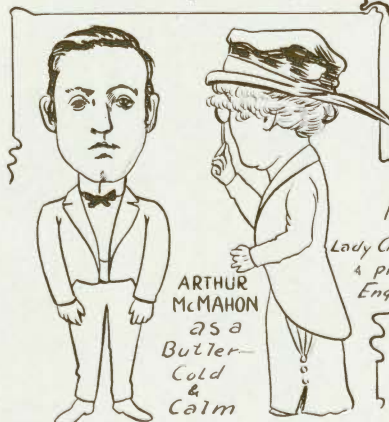 ARTHUR
McMAHON
as a
Butler—
Cold
&
Calm
Lady